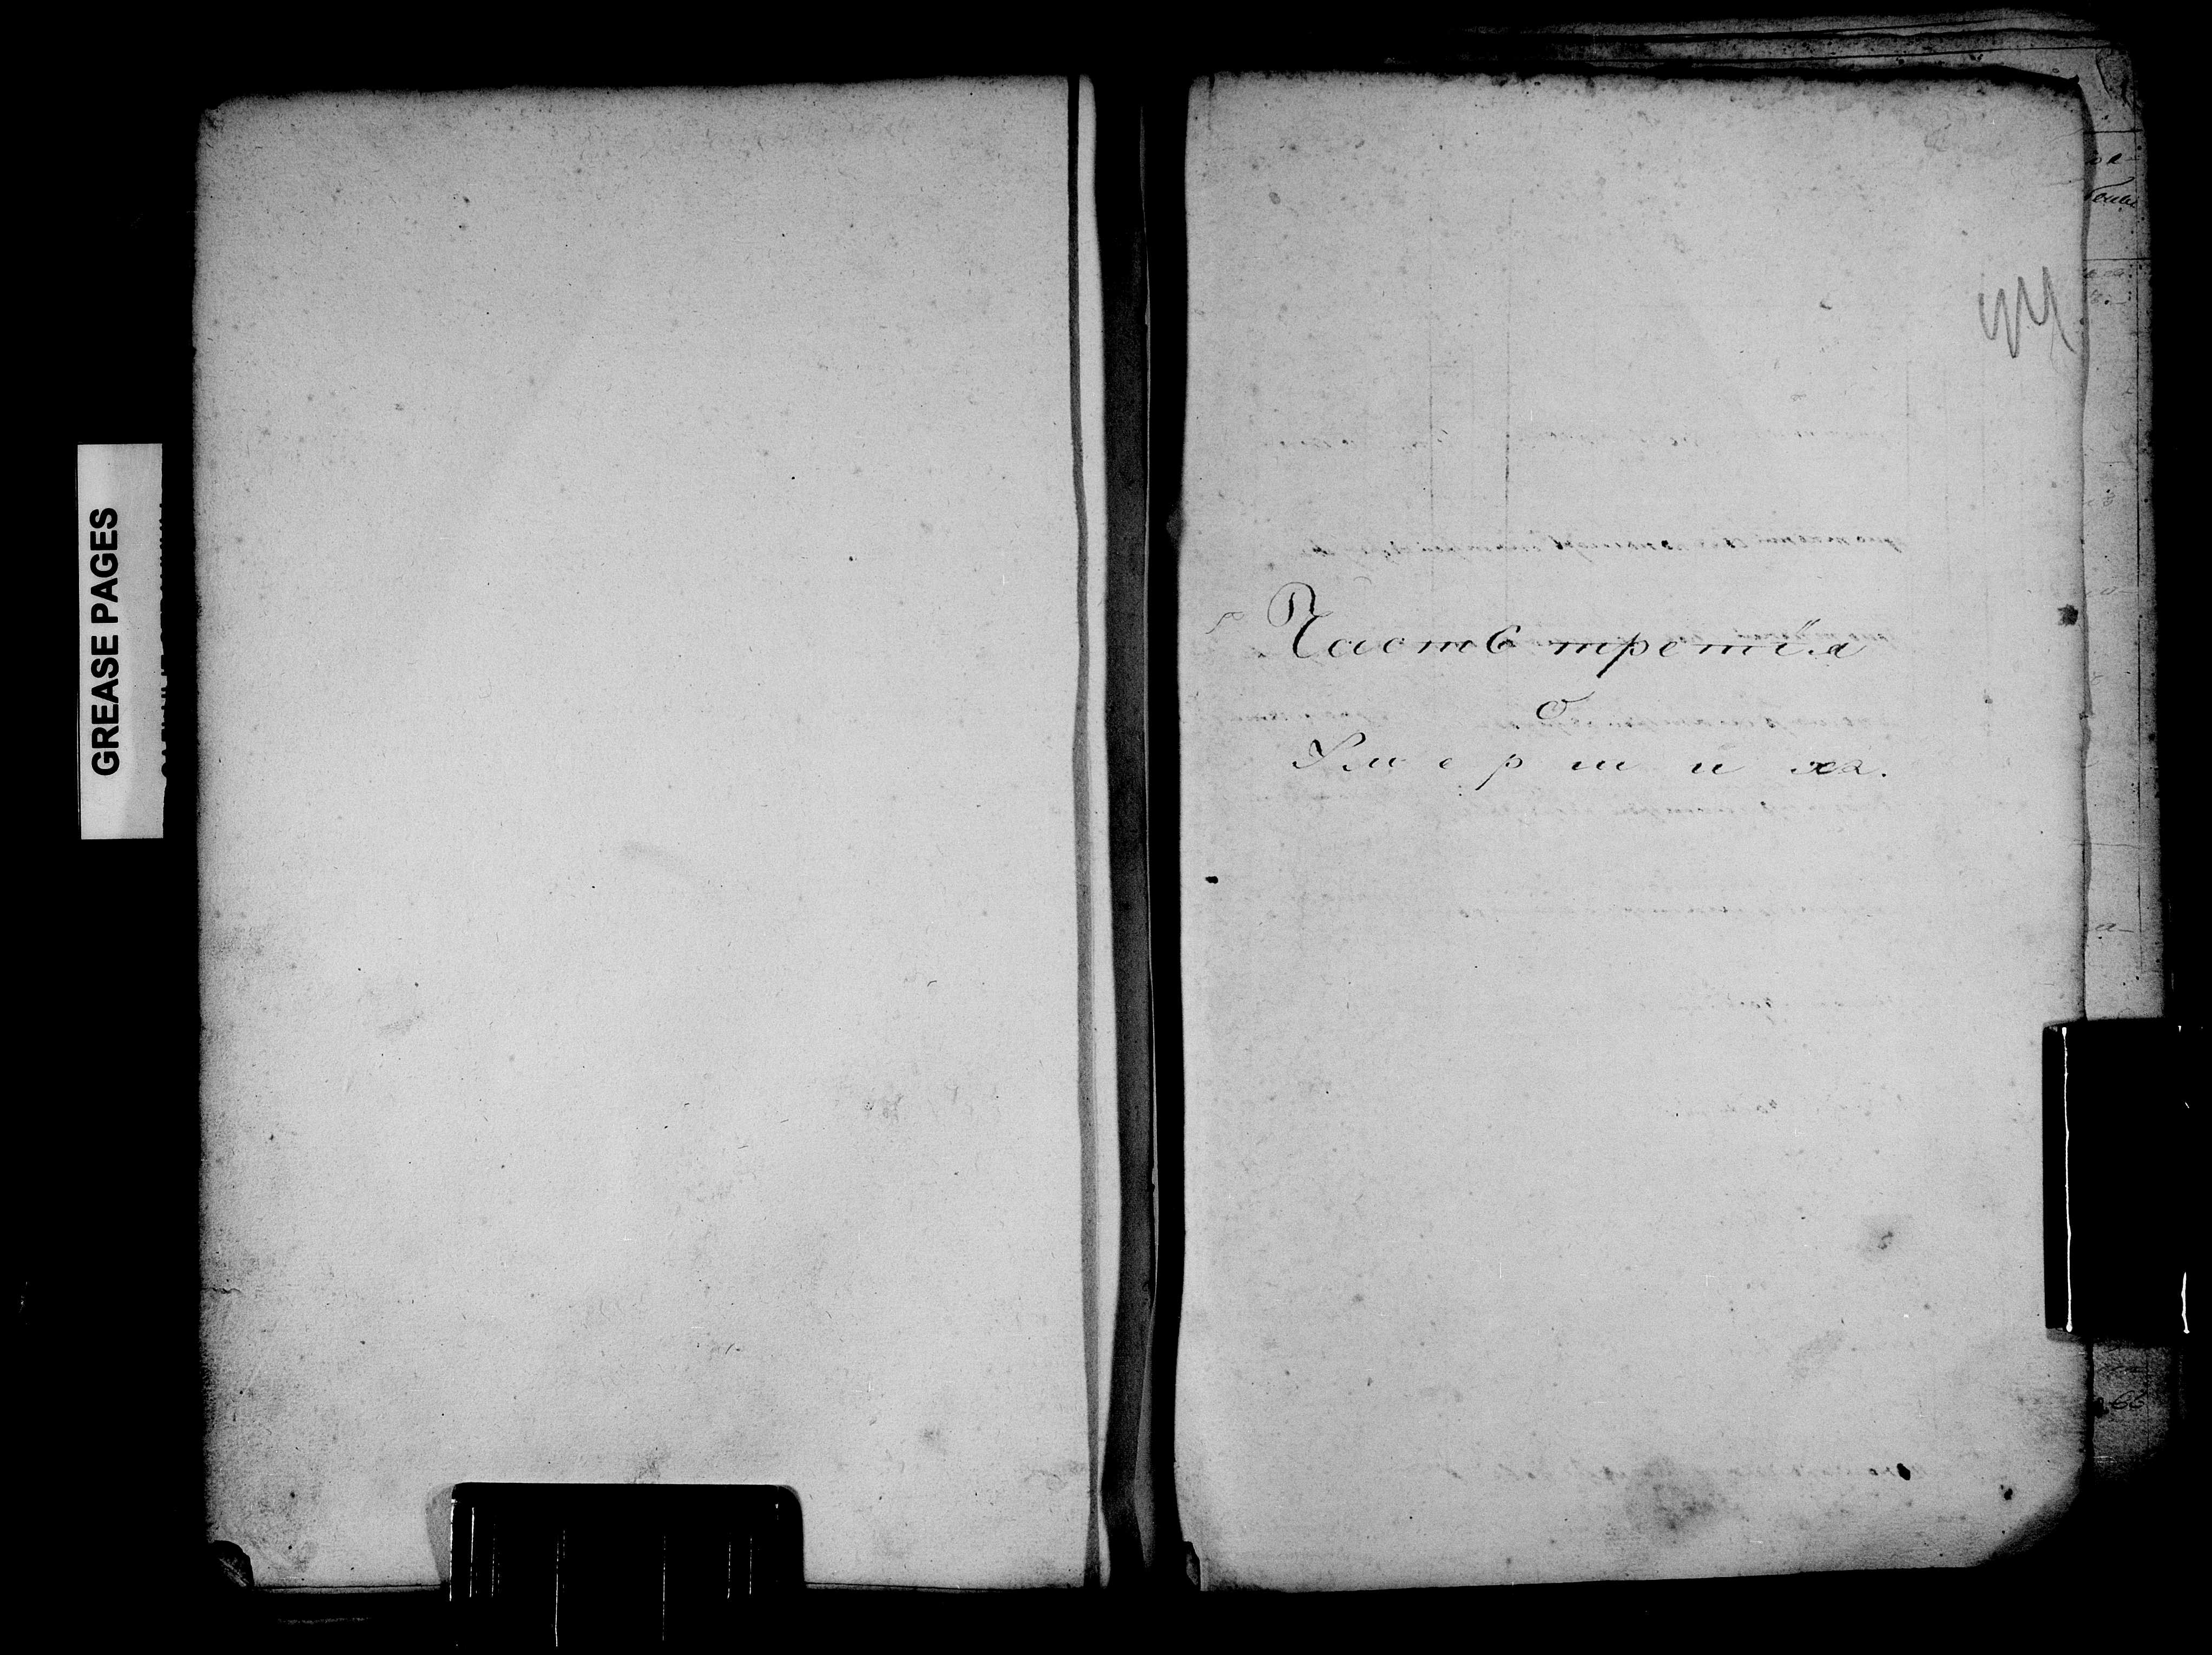 GREASE PAGES
Часть третія
О
Умершихъ.